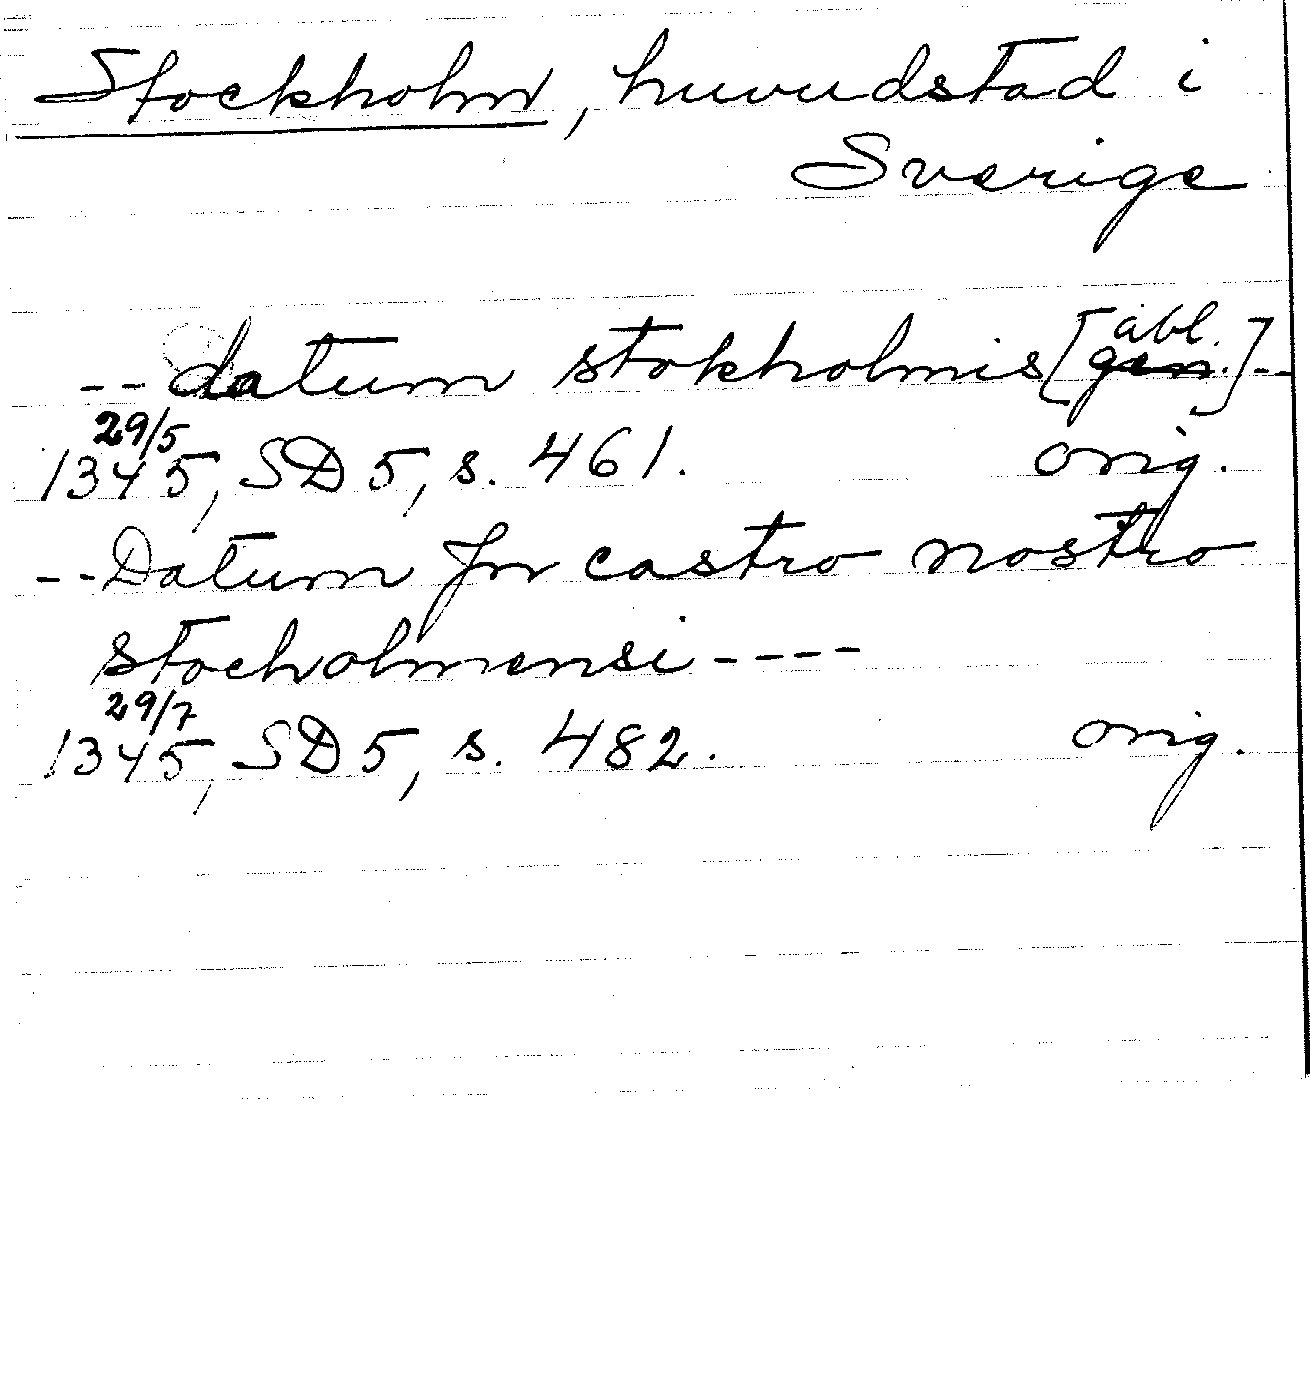 Stockholm, huvudstad i
Sverige
-- datum stokholmis [gen. abl.] --
29/5
1345, SD 5, s. 461. orig.
-- Datum Jn castro nostro
stocholmensi ----
29/7
1345, SD 5, s. 482. orig.